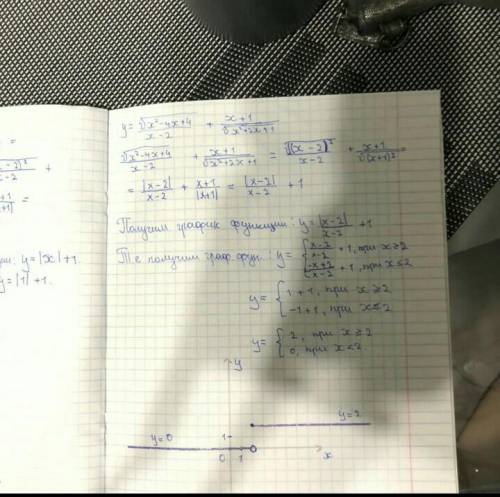 y = √(x²-4x+4)/(x-2) + (x+1)/√(x²+2x+1)
√(x²-4x+4)/(x-2) + (x+1)/√(x²+2x+1) = √((x-2)²)/(x-2) + (x+1)/√((x+1)²) =
= |x-2|/(x-2) + (x+1)/|x+1| = |x-2|/(x-2) + 1
Получим график функции: y = |x-2|/(x-2) + 1
Т.е получим граф. фун.: y = { (x-2)/(x-2) + 1, при x≥2
(-x+2)/(x-2) + 1, при x≤2
y = { 1+1, при x≥2
-1+1, при x≤2
y = { 2, при x≥2
0, при x<2
y
y=2
y=0
1
0 1
x
y=|x|+1.
y=|1|+1.